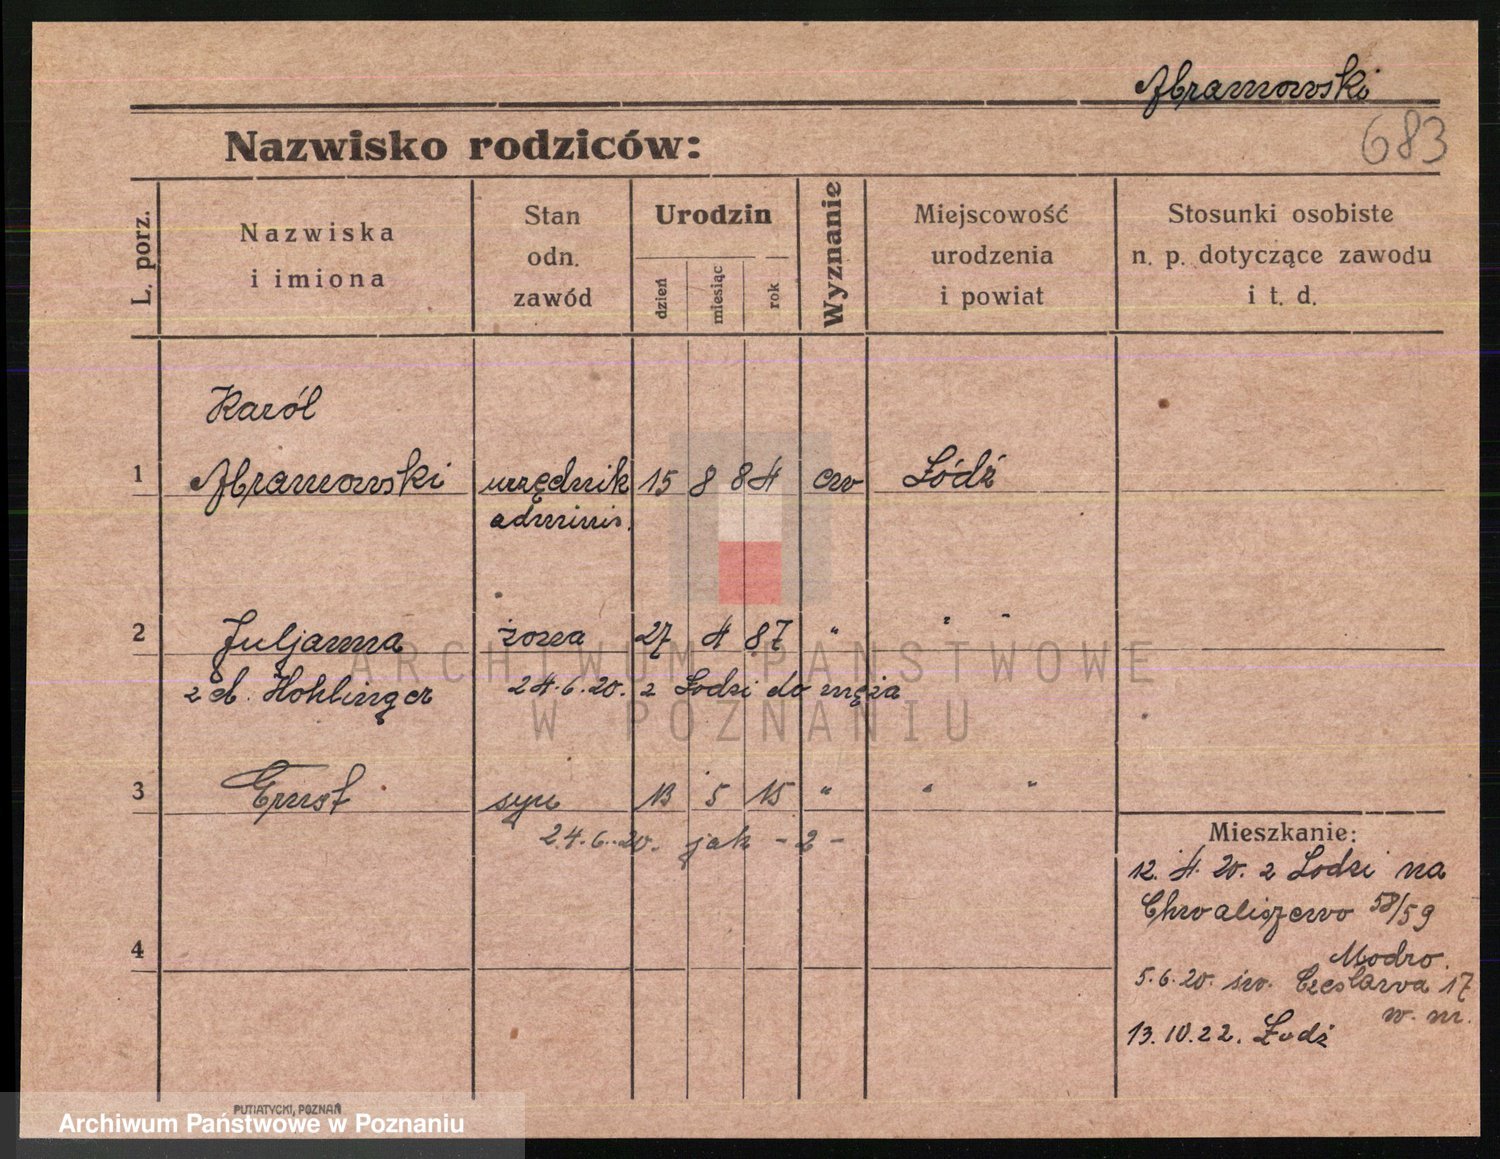 Abramowski
683
Nazwisko rodziców:
L. porz.
Nazwiska
i imiona
Stan
odn.
zawód
Urodzin
dzień
miesiąc
rok
Wyznanie
Miejscowość
urodzenia
i powiat
Stosunki osobiste
n. p. dotyczące zawodu
i t. d.
Karól
1 Abramowski urzędnik 15 8 84 ew Łódź
adminis.
2 Juljanna żona 27 4 87 " " "
z d. Hohlinger 24.6.20. z Łodzi do męża
3 Ernst syn 13 5 15 " " "
24.6.20. jak -2-
Mieszkanie:
12. 4. 20. z Łodzi na
Chwaliszewo 58/59
Modro.
5.6.20. św. Czesława 17
w. m.
13.10.22. Łodź
4
PUTIATYCKI, POZNAŃ
ARCHIWUM PAŃSTWOWE
W POZNANIU
Archiwum Państwowe w Poznaniu